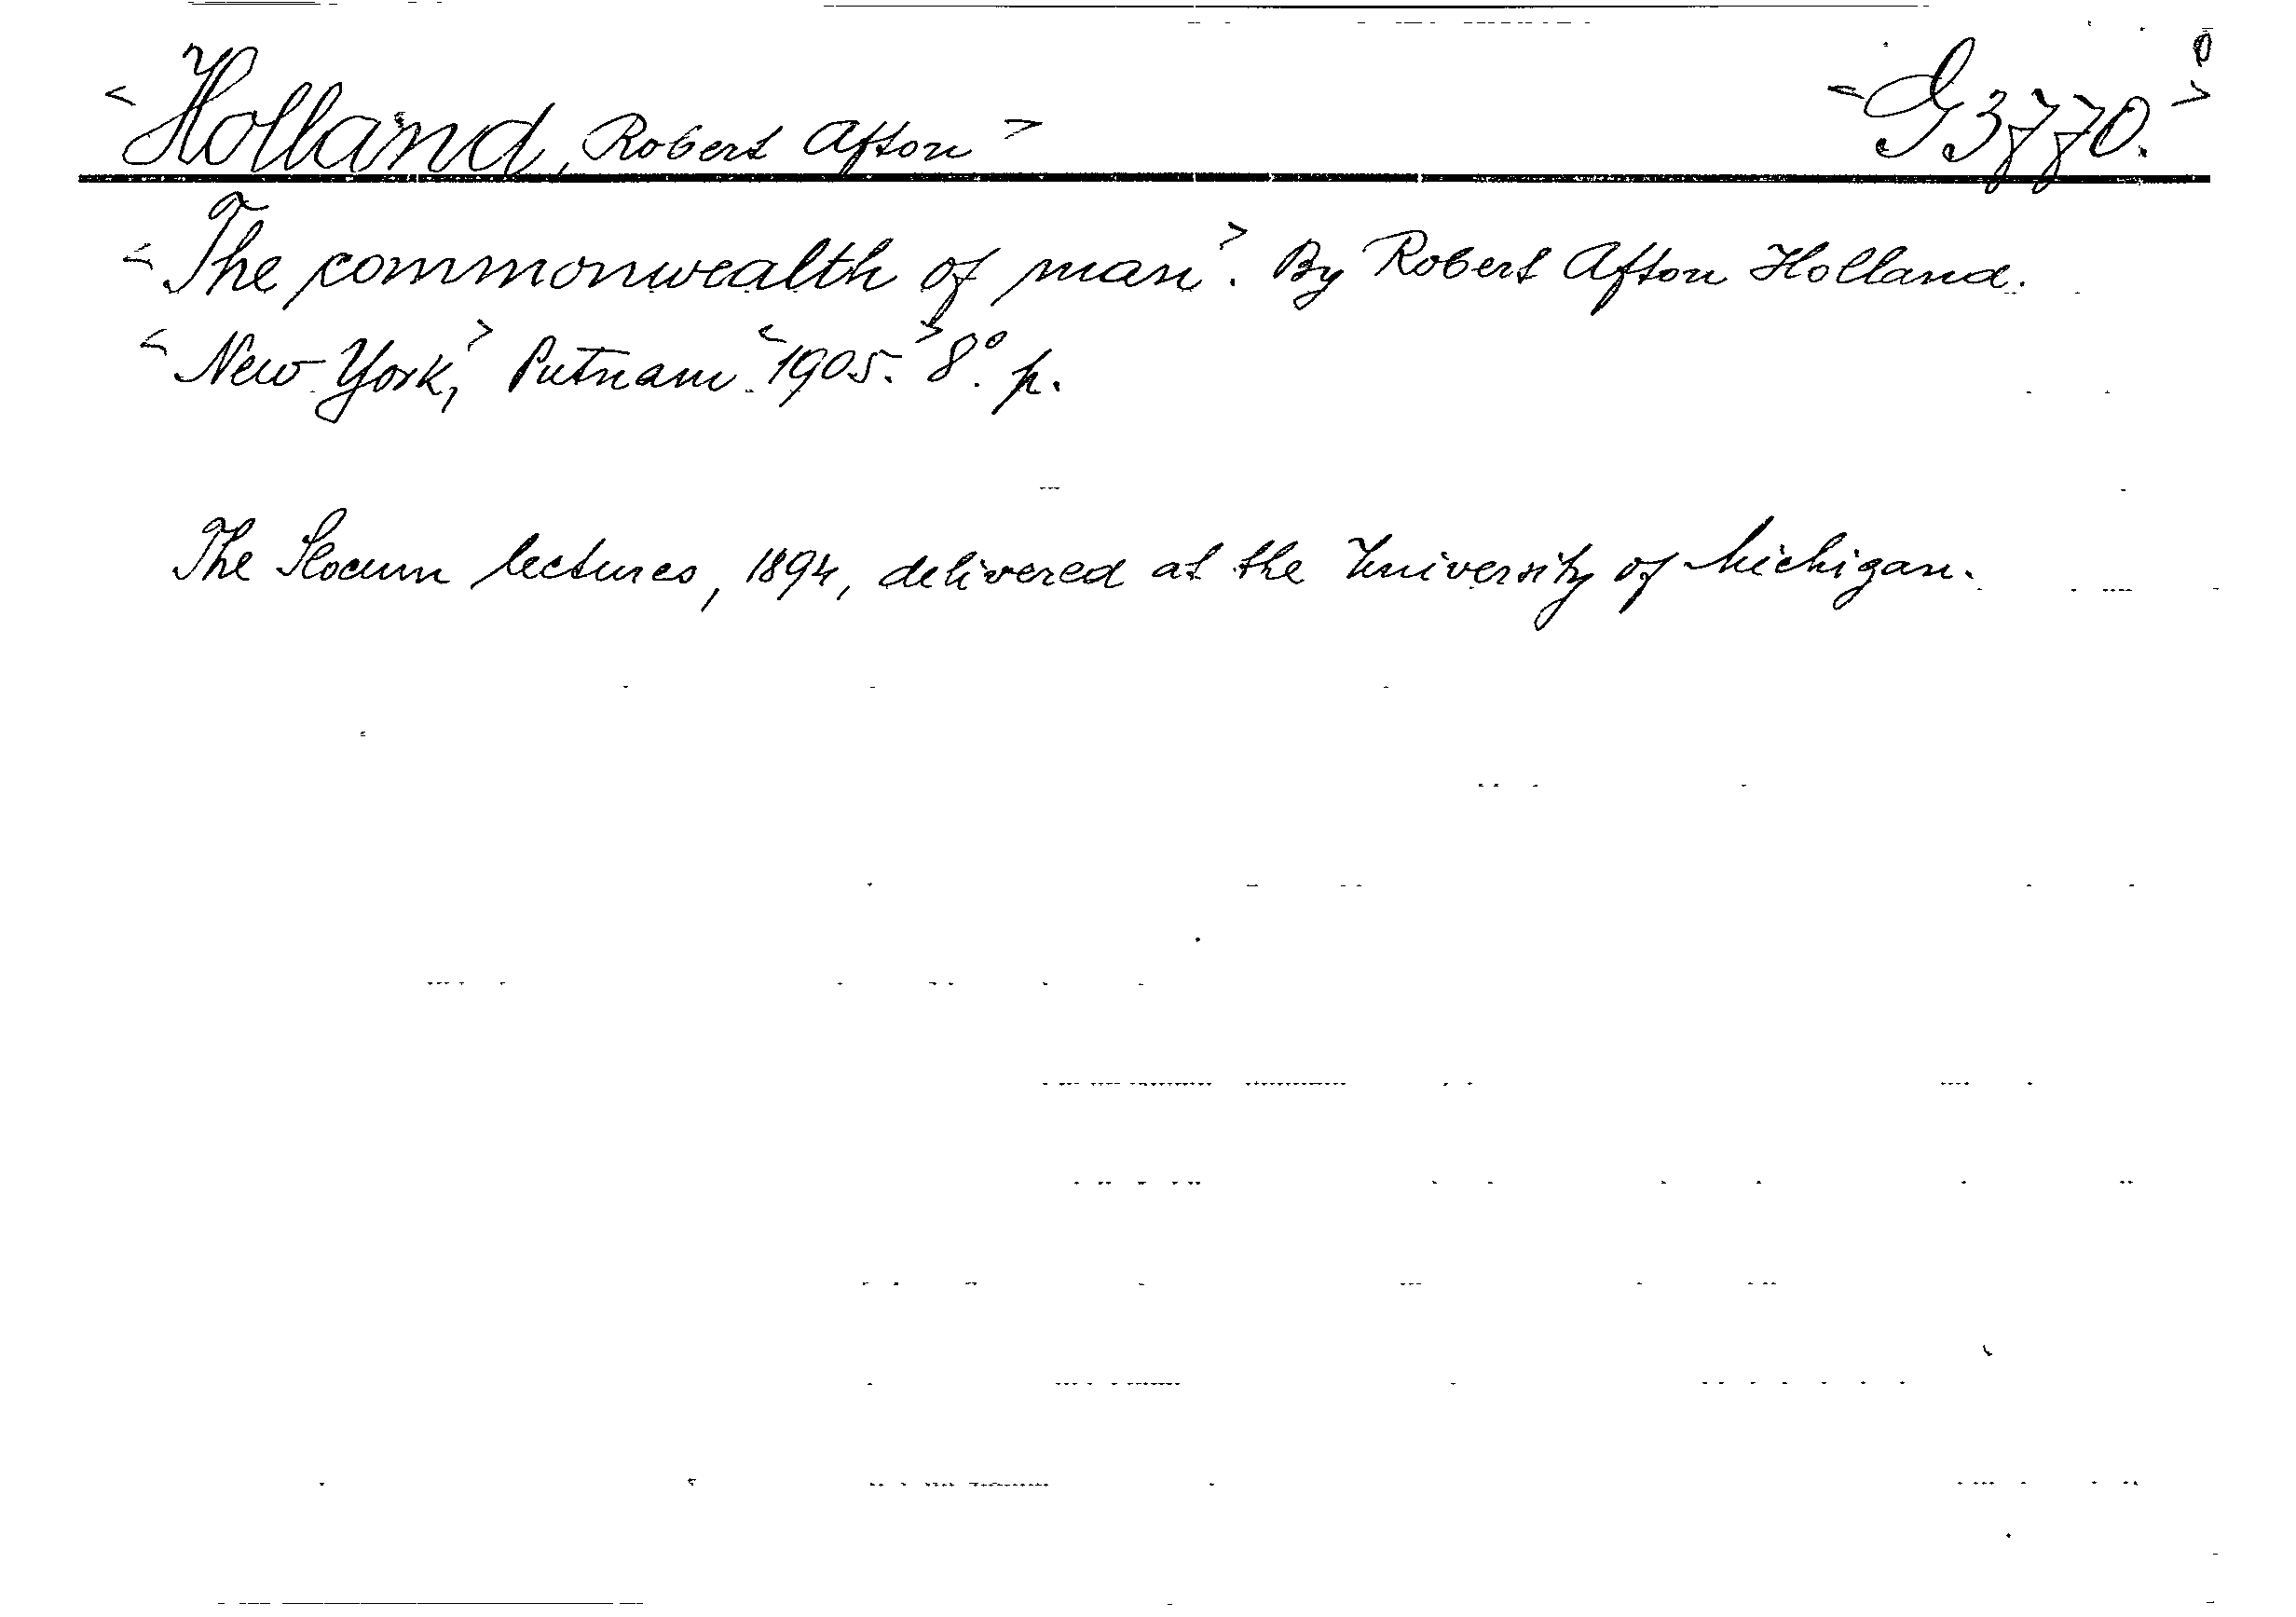 <Holland, Robert Afton> <G3770.>
<The commonwealth of man>. By Robert Afton Holland.
<New York,> Putnam <1905.> 8°. p.
The Slocum lectures, 1894, delivered at the University of Michigan.